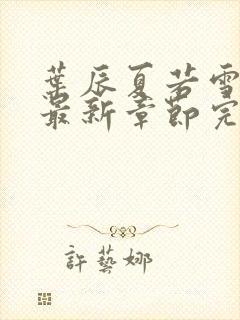 葉辰夏若雪
最新章節完
許藝娜